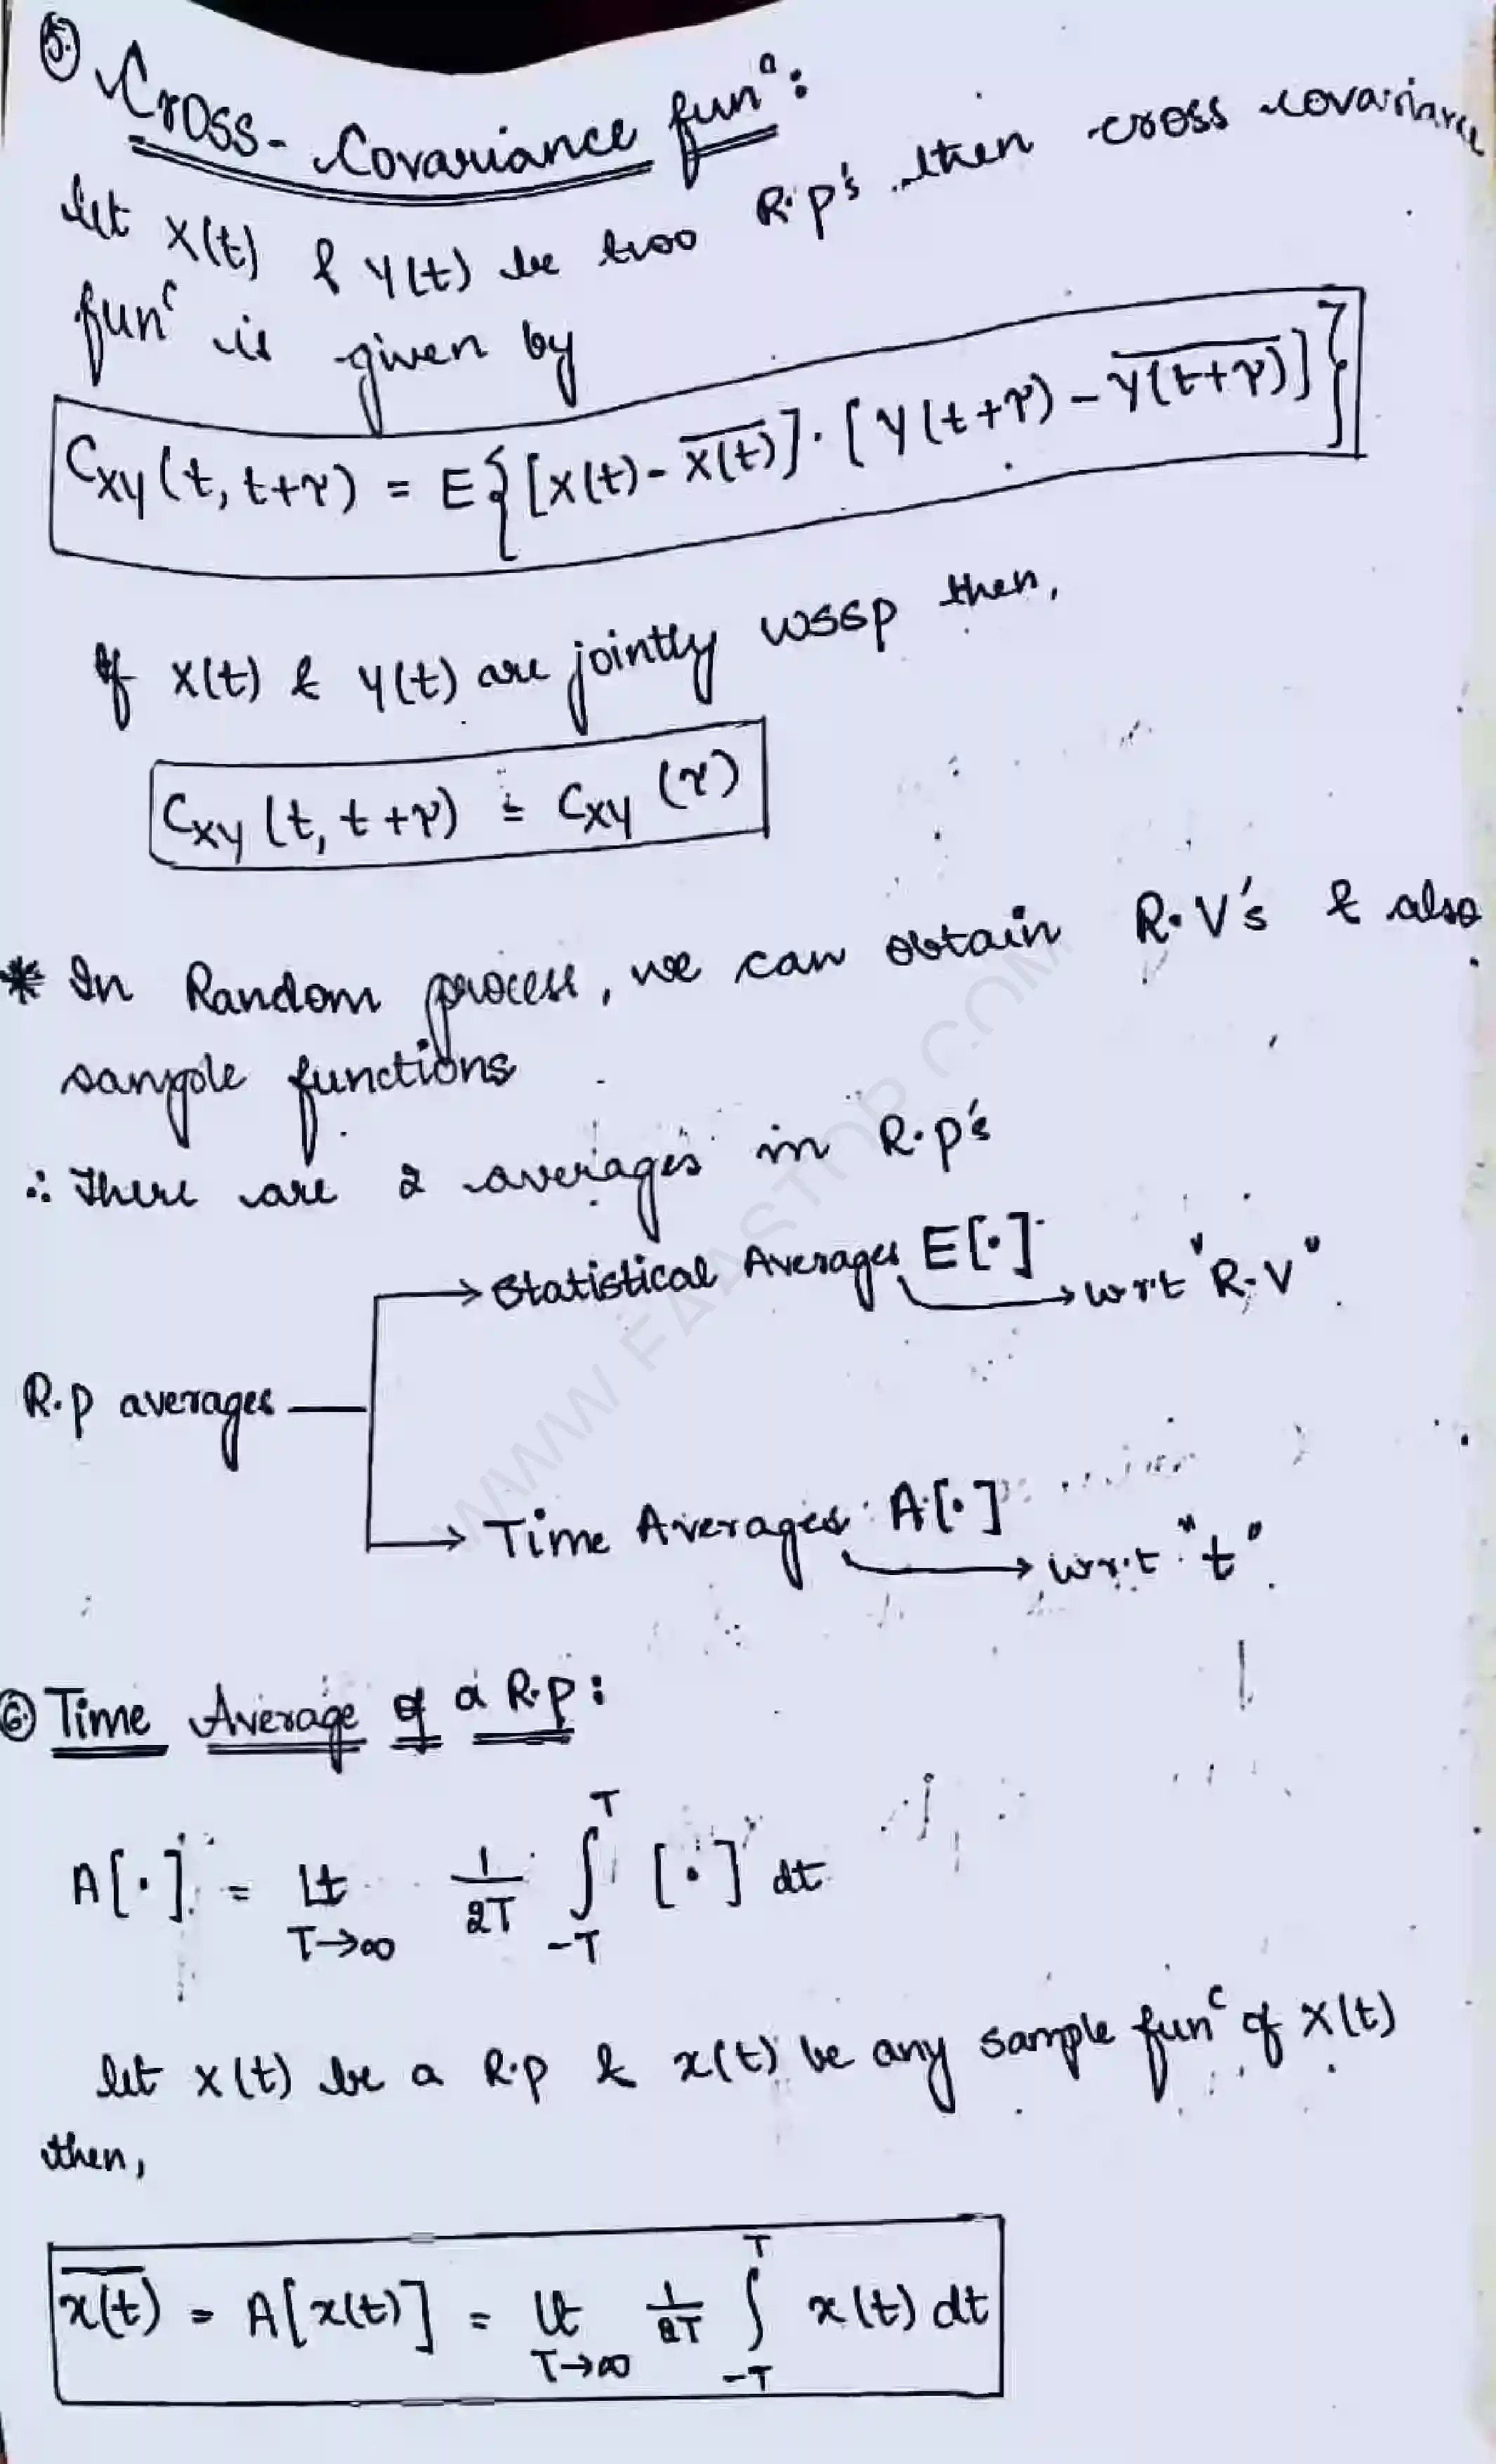 5. Cross-Covariance funⁿ:
let X(t) & Y(t) be two R.p's then cross covariance
funᶜ is given by
Cxy(t, t+τ) = E{[X(t) - X̅(̅t̅)̅]·[Y(t+τ) - Y̅(̅t̅+̅τ̅)̅]}
If X(t) & Y(t) are jointly WSSP then,
Cxy(t, t+τ) = Cxy(τ)
* In Random process, we can obtain R.V's & also
sample functions
∴ There are 2 averages in R.p's
→ Statistical Averages E[·] → w.r.t "R.V"
R.p averages
→ Time Averages: A[·] → w.r.t "t"
6. Time Average of a R.p:
A[·] = Lt T→∞ 1/2T ∫_{-T}^{T} [·] dt
let X(t) be a R.p & x(t) be any sample funᶜ of X(t)
then,
x̅(̅t̅)̅ = A[x(t)] = Lt T→∞ 1/2T ∫_{-T}^{T} x(t) dt
WWW.FAASTOP.COM